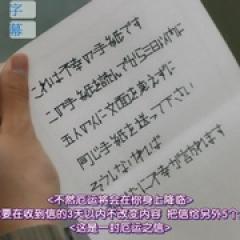 字
幕
これは不幸の手紙です
この手紙を読んでから三日以内に
五人の人に文面を変えずに
同じ手紙を送って下さい
そうしないと
不幸が訪れます
<不然厄运将会在你身上降临>
要在收到信的3天以内不改变内容 把信给另外5个
<这是一封厄运之信>